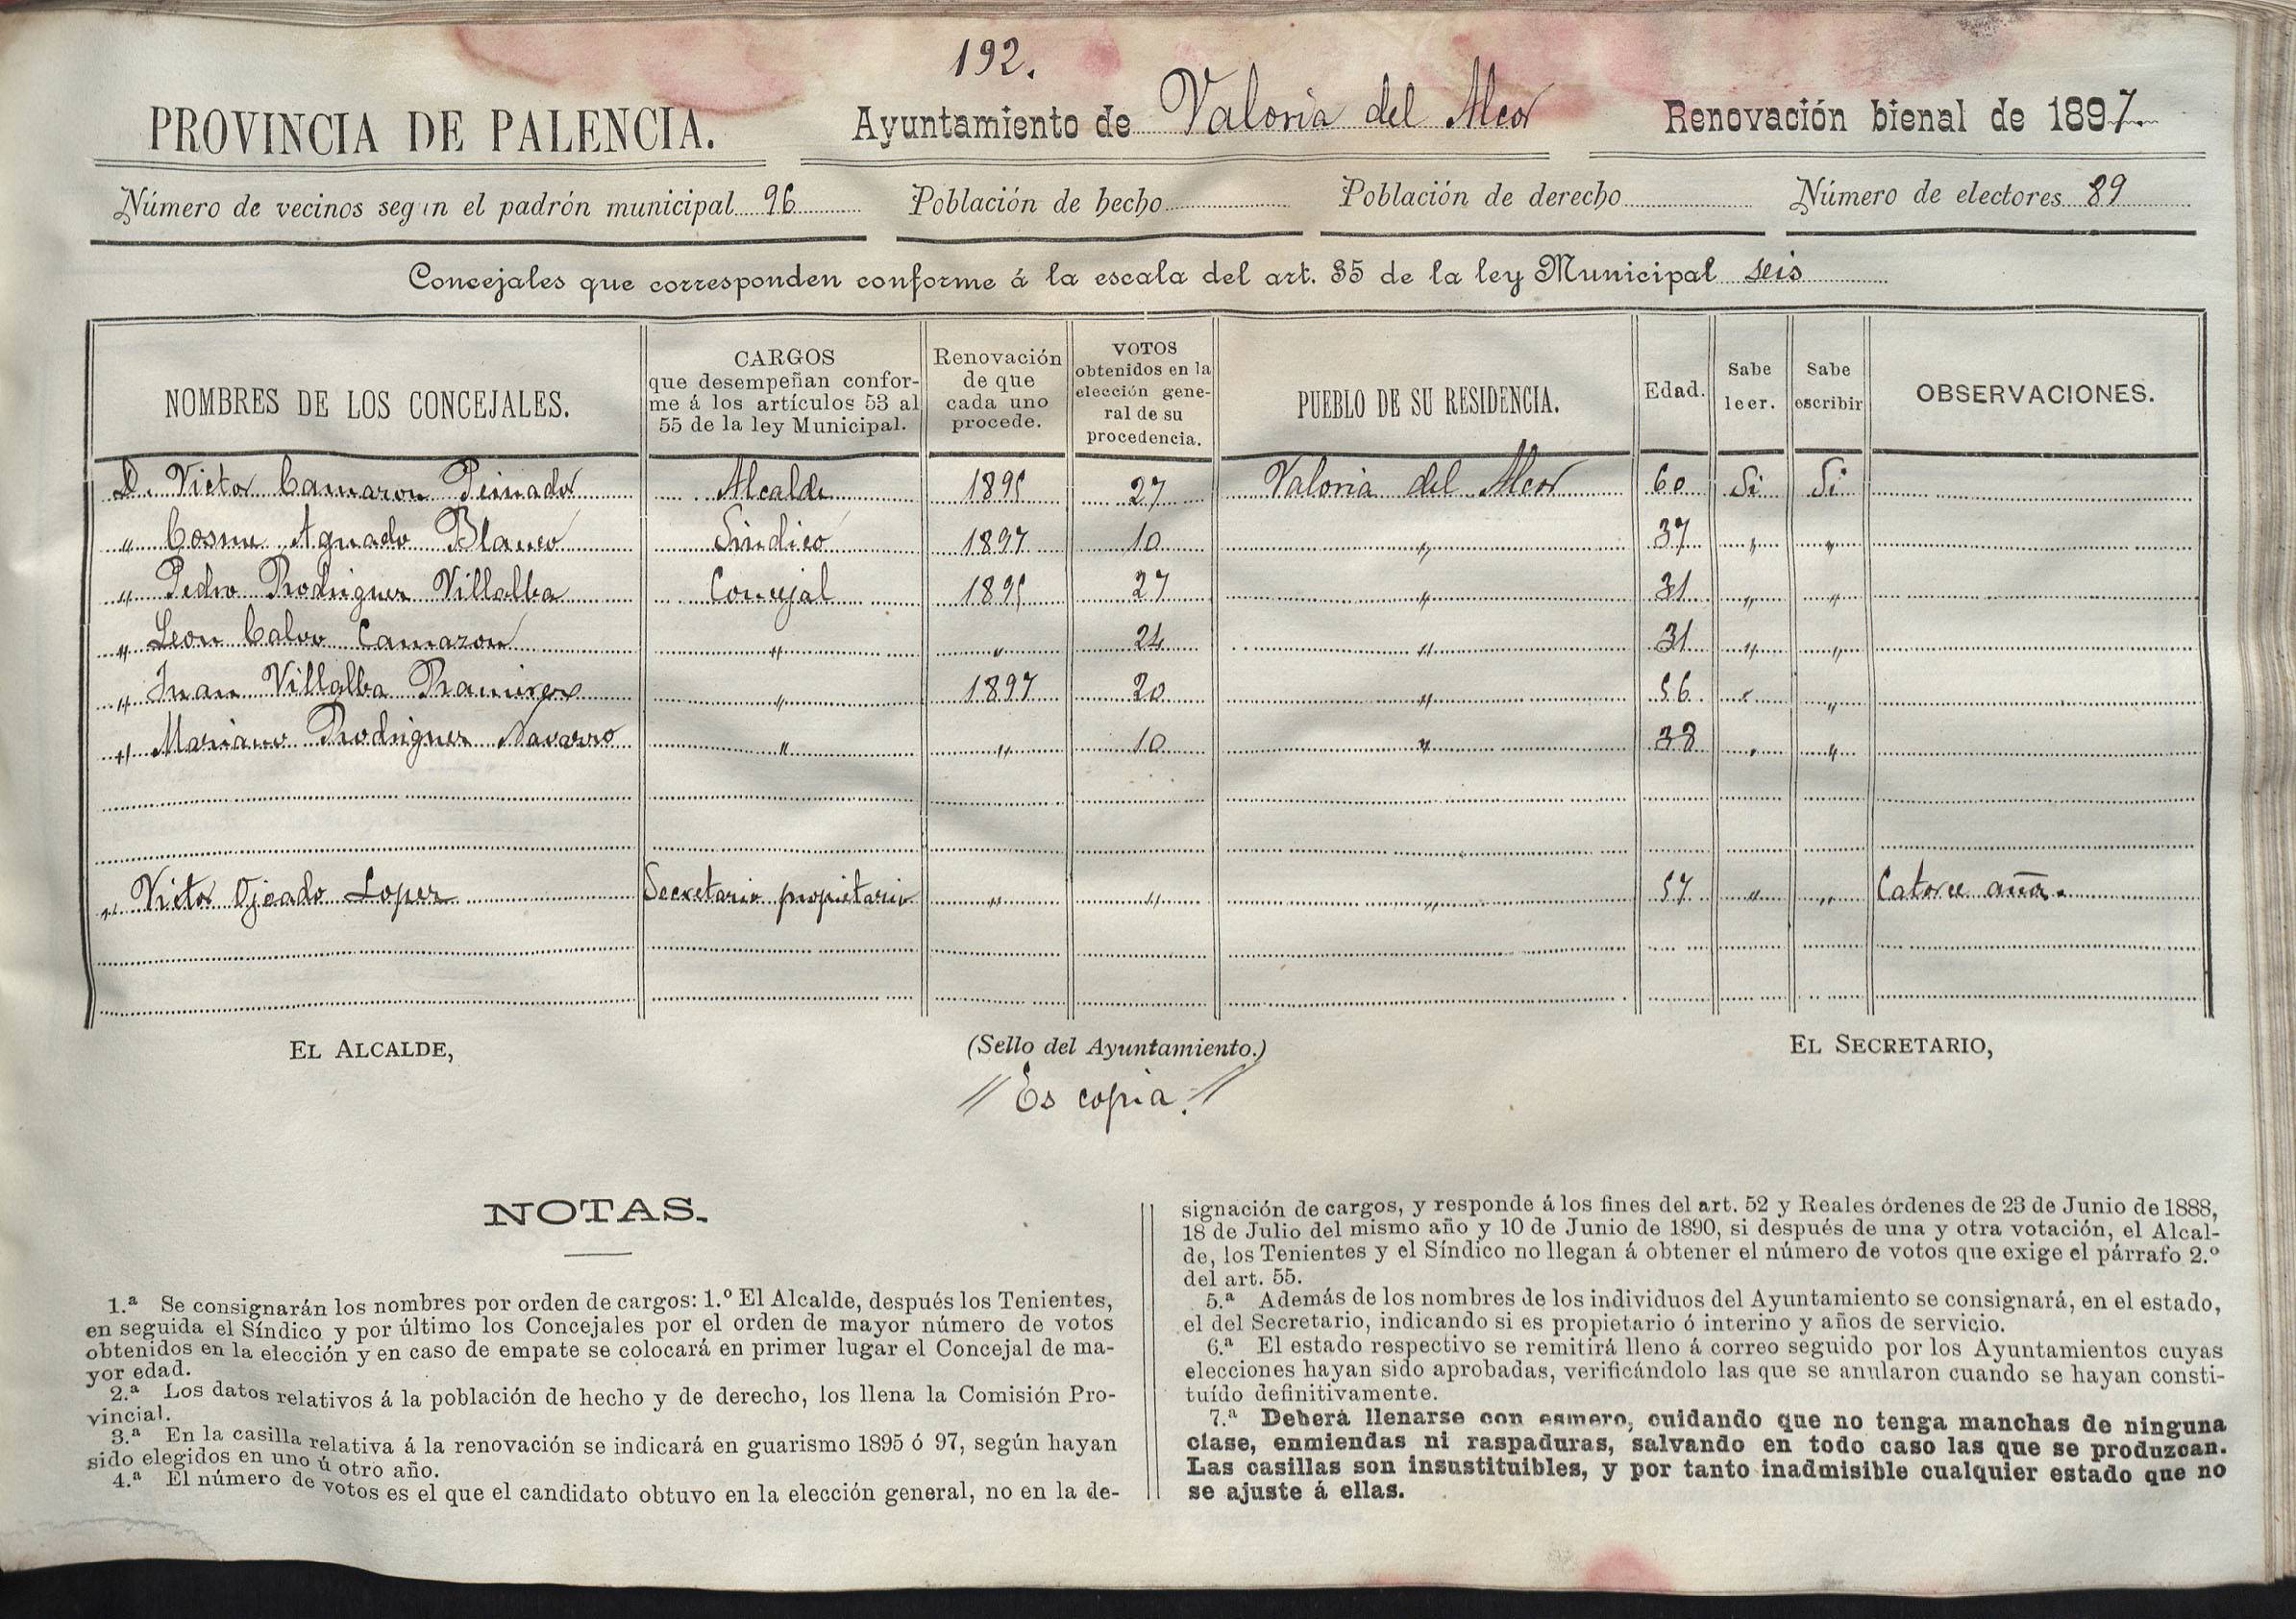 192.
PROVINCIA DE PALENCIA. Ayuntamiento de Valoria del Alcor Renovación bienal de 1897.
Número de vecinos según el padrón municipal 96 Población de hecho Población de derecho Número de electores 89
Concejales que corresponden conforme á la escala del art. 35 de la ley Municipal seis
NOMBRES DE LOS CONCEJALES. CARGOS que desempeñan confor- me á los artículos 53 al 55 de la ley Municipal. Renovación de que cada uno procede. VOTOS obtenidos en la elección gene- ral de su procedencia. PUEBLO DE SU RESIDENCIA. Edad. Sabe leer. Sabe escribir OBSERVACIONES.
D. Victor Camazon Peinador Alcalde 1895 27 Valoria del Alcor 60 Si Si
" Cosme Aguado Blanco Sindico 1897 10 " 37 " "
" Pedro Rodriguez Villalba Concejal 1895 27 " 31 " "
" Leon Calvo Camazon " " 24 " 31 " "
" Juan Villalba Ramirez " 1897 20 " 56 " "
" Mariano Rodriguez Navarro " " 10 " 38 " "
" Victor Ojeado Lopez Secretario propietario " " " 57 " " Catorce años.
EL ALCALDE, (Sello del Ayuntamiento.) EL SECRETARIO,
// Es copia. //
NOTAS.
1.ª Se consignarán los nombres por orden de cargos: 1.º El Alcalde, después los Tenientes,
en seguida el Síndico y por último los Concejales por el orden de mayor número de votos
obtenidos en la elección y en caso de empate se colocará en primer lugar el Concejal de ma-
yor edad.
2.ª Los datos relativos á la población de hecho y de derecho, los llena la Comisión Pro-
vincial.
3.ª En la casilla relativa á la renovación se indicará en guarismo 1895 ó 97, según hayan
sido elegidos en uno ú otro año.
4.ª El número de votos es el que el candidato obtuvo en la elección general, no en la de-
signación de cargos, y responde á los fines del art. 52 y Reales órdenes de 23 de Junio de 1888,
18 de Julio del mismo año y 10 de Junio de 1890, si después de una y otra votación, el Alcal-
de, los Tenientes y el Síndico no llegan á obtener el número de votos que exige el párrafo 2.º
del art. 55.
5.ª Además de los nombres de los individuos del Ayuntamiento se consignará, en el estado,
el del Secretario, indicando si es propietario ó interino y años de servicio.
6.ª El estado respectivo se remitirá lleno á correo seguido por los Ayuntamientos cuyas
elecciones hayan sido aprobadas, verificándolo las que se anularon cuando se hayan consti-
tuído definitivamente.
7.ª Deberá llenarse con esmero, cuidando que no tenga manchas de ninguna
clase, enmiendas ni raspaduras, salvando en todo caso las que se produzcan.
Las casillas son insustituibles, y por tanto inadmisible cualquier estado que no
se ajuste á ellas.